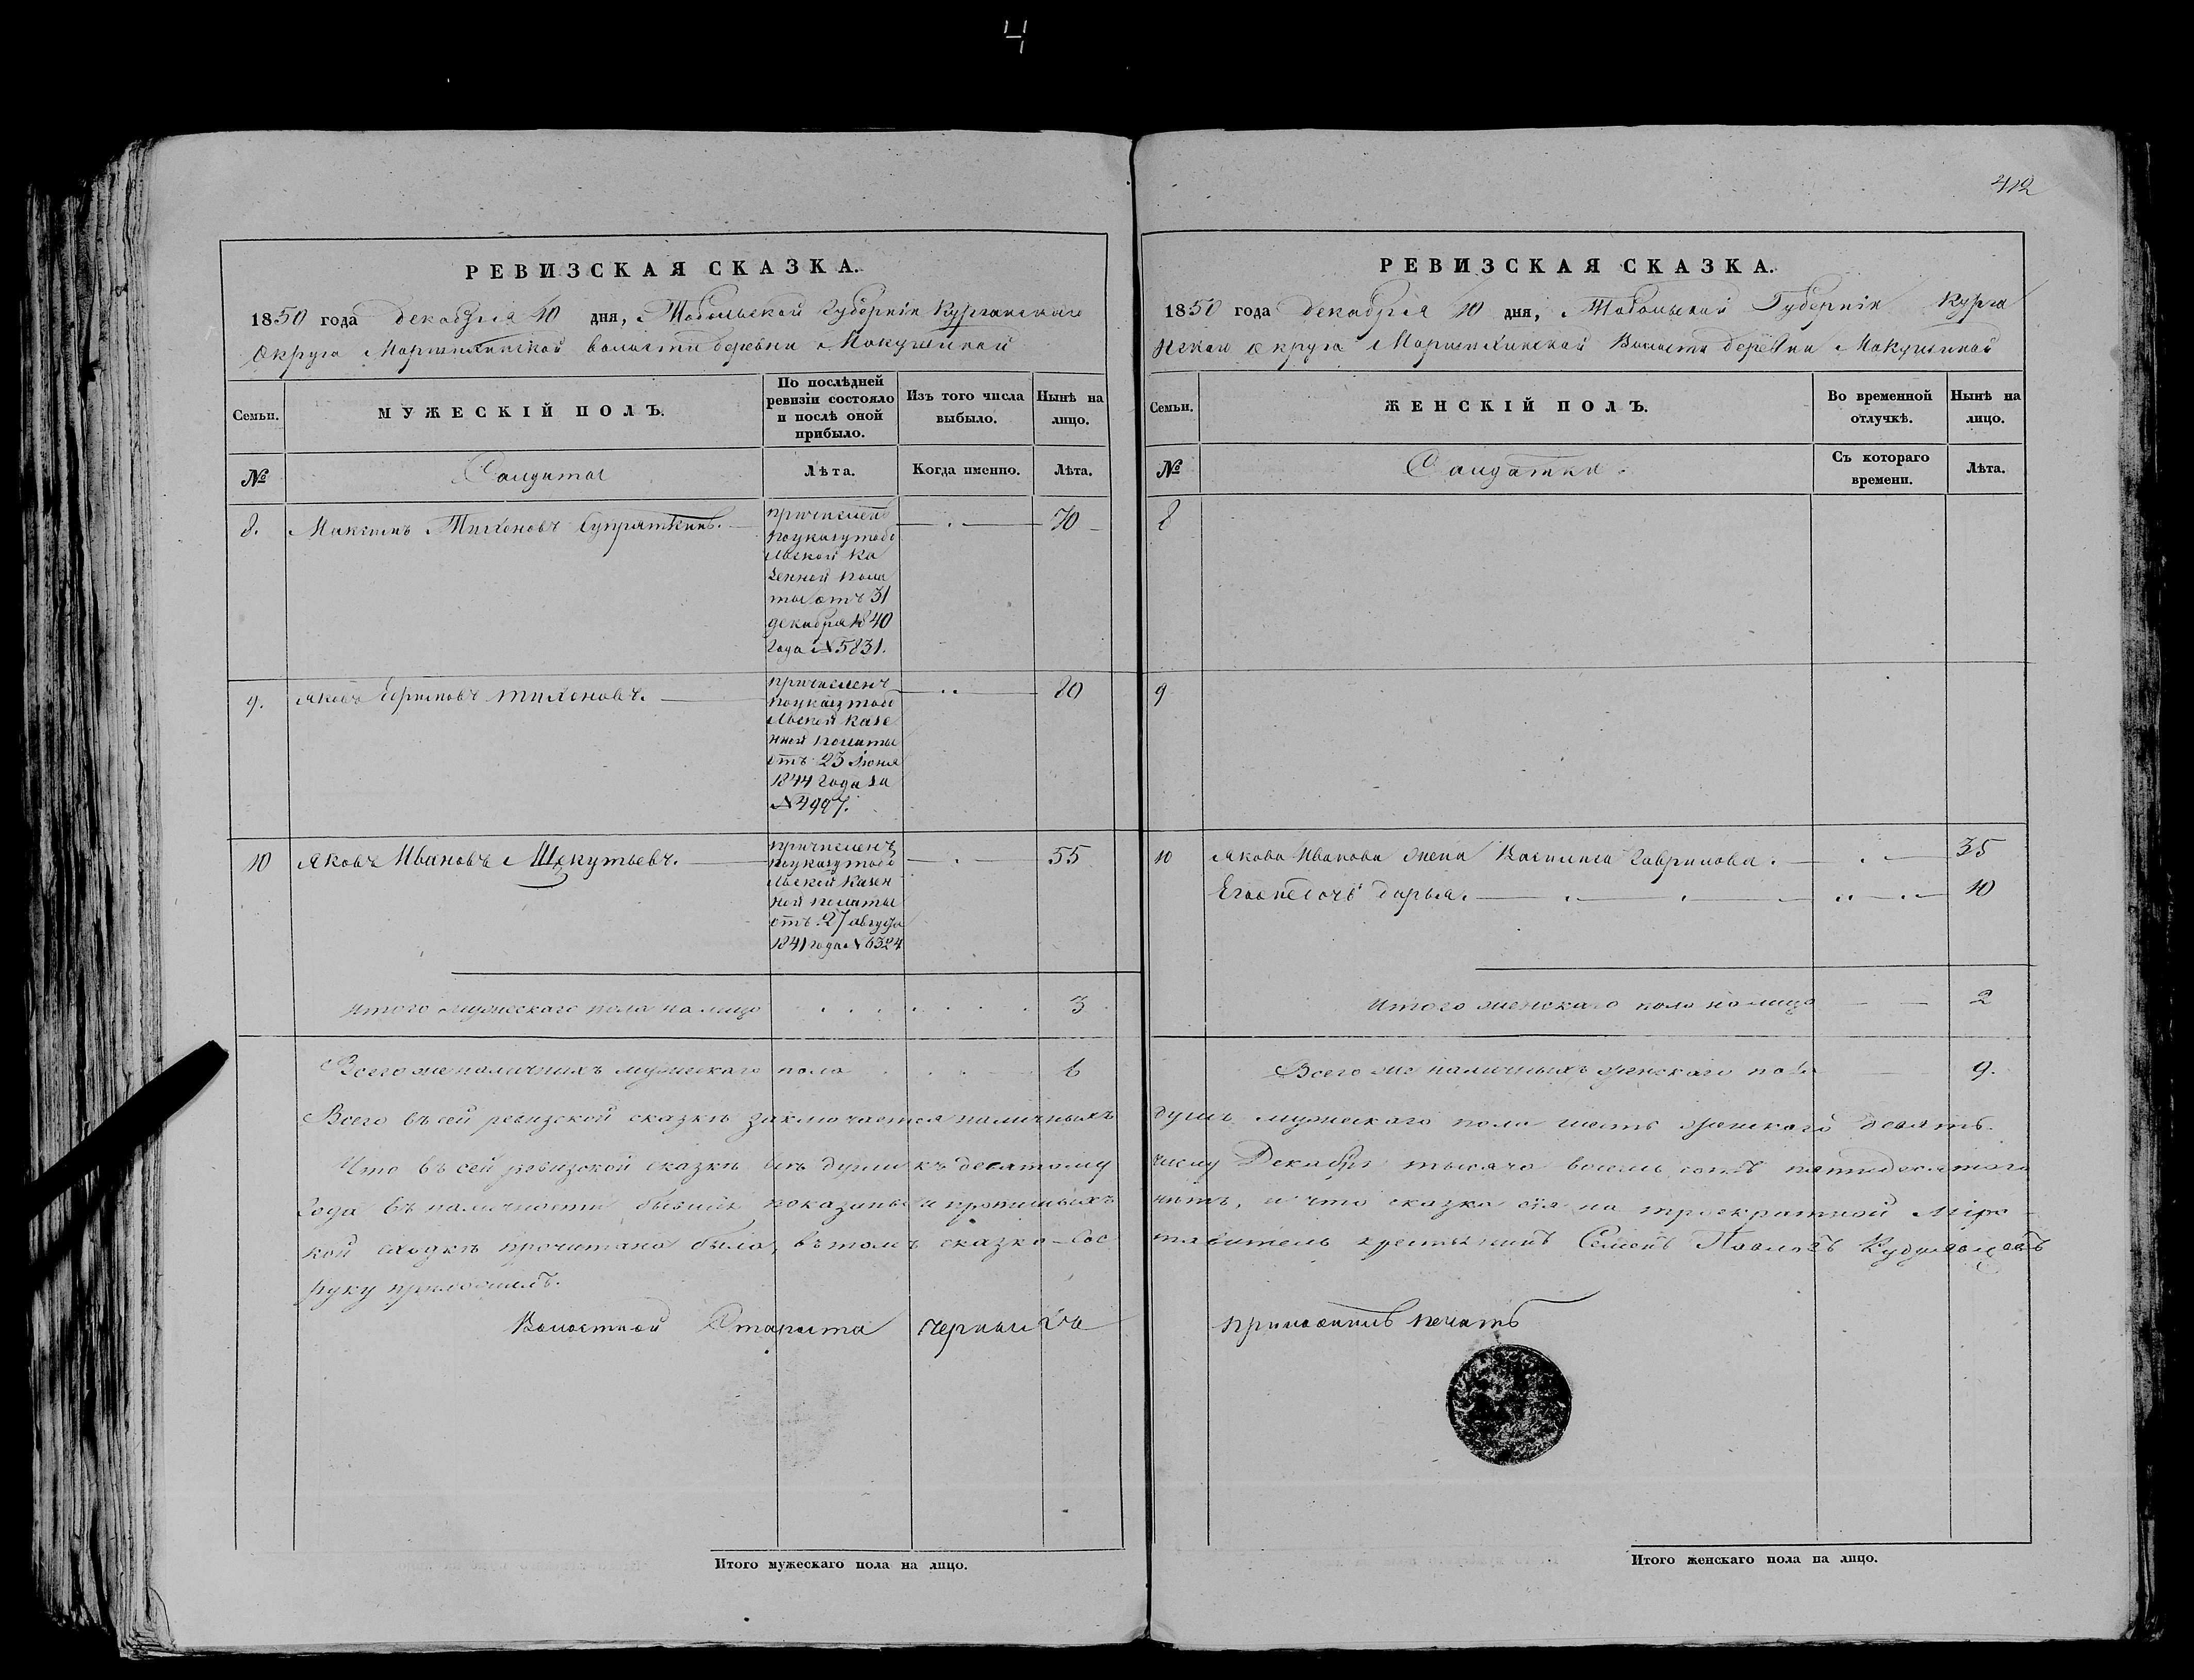 4
412
РЕВИЗСКАЯ СКАЗКА.
1850 года декабря 10 дня, Тобольской Губернiи Курганскаго
Округа Моршихинской волости деревни Мокушиной
Семьи.
МУЖЕСКIЙ ПОЛЪ.
По послѣдней
ревизiи состояло
и послѣ оной
прибыло.
Изъ того числа
выбыло.
Нынѣ на
лицо.
№
Солдаты
Лѣта.
Когда именно.
Лѣта.
8. Максимъ Тихоновъ Супряткинъ. 70
причисленъ
поуказу тобо
льской Ка
зенной пала
ты отъ 31
декабря 1840
года №5831.
9. Яковъ Борисовъ Тихоновъ. 80
причисленъ
поуказу тобо
льской казе
нной палаты
отъ 23 Июня
1844 года за
№4997.
10 Яковъ Ивановъ Шекутьевъ. 55
причисленъ
поуказу тобо
льской казен
ной палаты
отъ 27 августа
1841 года №6324
итого мужескаго пола налицо 3
Всего же наличныхъ мужескаго пола 6
Всего въсей ревизской сказкѣ заключается наличныхъ
Что въсей ревизской сказкѣ всѣ души къ десятому
Года въ наличности бывшiя показаны и прописныхъ
кой сходкѣ прочитана была, въ томъ сказко-сос
руку приложилъ.
Волостной Староста Черныхъ
Итого мужескаго пола на лицо.
РЕВИЗСКАЯ СКАЗКА.
1850 года Декабря 10 дня, Тобольской Губернiи Курга
нскаго округа Моршихинской Волости деревни Мокушиной
Семьи.
ЖЕНСКIЙ ПОЛЪ.
Во временной
отлучкѣ.
Нынѣ на
лицо.
№
Солдатки.
Съ котораго
времени.
Лѣта.
8
9
10 Якова Иванова жена Василиса Гаврилова. 35
Дарья. 10
Итого женскаго пола налицо 2
Всего же наличныхъ женскаго пола 9.
душъ мужескаго пола шесть женскаго девять.
числу Декабря тысяча восемь сотъ пятидесятаго
нѣтъ, и что сказка сiя на троекратной мiрс
тавитель крестьянинъ Семенъ Павловъ
приложилъ печать
Итого женскаго пола на лицо.